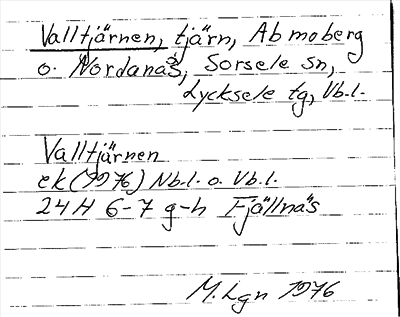 Valltjärnen, tjärn, Abmoberg
o. Nordanås, Sorsele sn,
Lycksele tg, Vb.l.
Valltjärnen
ek (1976) Nb.l. o. Vb.l.
24H 6-7 g-h Fjällnäs
M. Lgn 1976